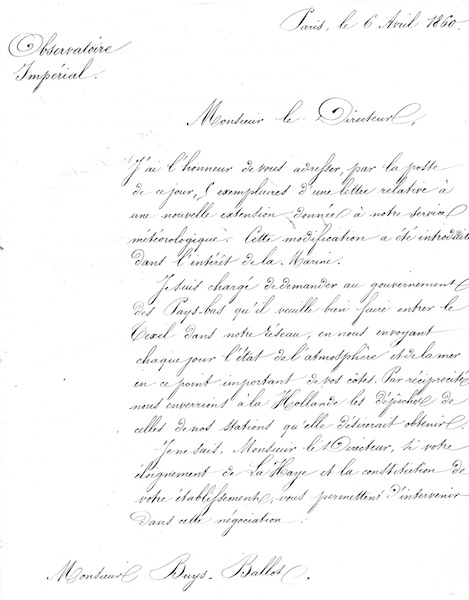 Paris, le 6 Avril 1860.
Observatoire
Impérial.
Monsieur le Directeur,
J'ai l'honneur de vous adresser, par la poste
de ce jour, 5 exemplaires d'une lettre relative à
une nouvelle extension donnée à notre service
météorologique. Cette modification a été introduite
dans l'intérêt de la Marine.
Je suis chargé de demander au gouvernement
des Pays-bas qu'il veuille bien faire entrer le
Texel dans notre réseau, en nous envoyant
chaque jour l'état de l'atmosphère et de la mer
en ce point important de vos côtes. Par réciprocité
nous enverrions à la Hollande les dépêches de
celles de nos stations qu'elle désirerait obtenir.
Je ne sait, Monsieur le Directeur, si votre
éloignement de La Haye et la constitution de
votre établissement, vous permettent d'intervenir
dans cette négociation.
Monsieur Buys-Ballot.